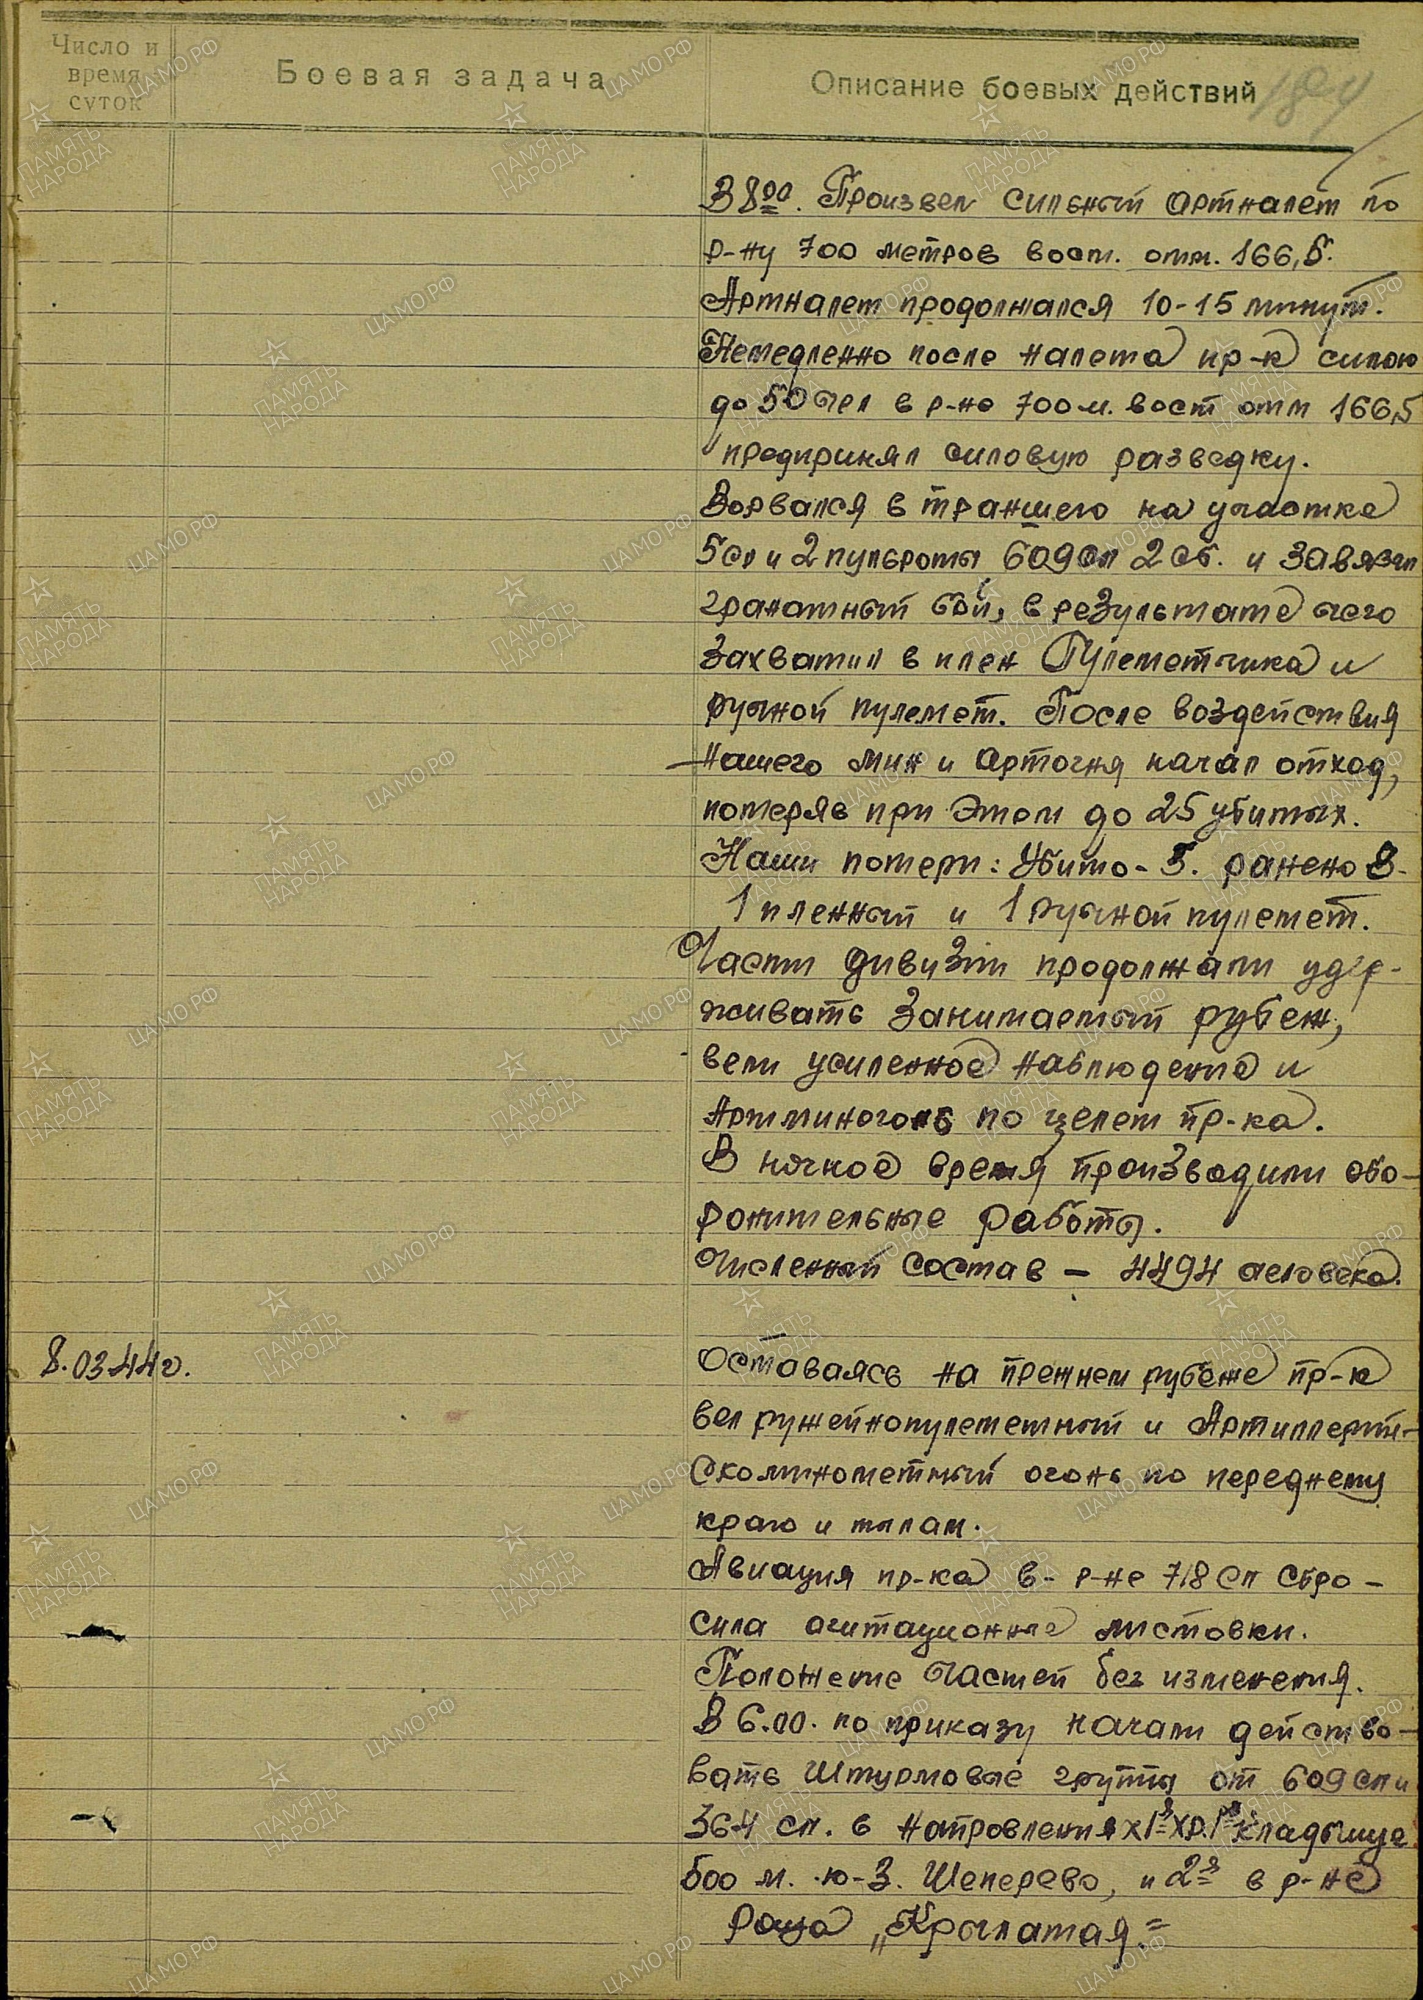 Число и
время
суток
Боевая задача
Описание боевых действий
В 8 00. Произвел сильный артналет по
р-ну 700 метров вост. отм. 166,5.
Артналет продолжался 10-15 минут.
Немедленно после налета пр-к силою
до 50 чел в р-не 700 м. вост отм 166,5
предпринял силовую разведку.
Ворвался в траншею на участке
5ср и 2 пульроты 609 сп 2 сб. и завязал
гранатный бой, в результате чего
захватил в плен Пулеметчика и
ручной пулемет. После воздействия
нашего мин и артогня начал отход,
потеряв при этом до 25 убитых.
Наши потери: Убито - 5. ранено 8.
1 пленный и 1 ручной пулемет.
Части дивизии продолжали удер-
живать занимаемый рубеж,
вели усиленное наблюдение и
Артминогонь по целем пр-ка.
В ночное время производили обо-
ронительные работы.
Численный состав - 4494 человека.
8.03.44 г.
Оставаясь на прежнем рубеже пр-к
вел ружейнопулеметный и Артиллерий-
скоминометный огонь по переднему
краю и тылам.
Авиация пр-ка в - р-не 718 сп сбро-
сила агитационные листовки.
Положение частей без изменения.
В 6.00. по приказу начали действо-
вать Штурмовые группы от 609 сп и
364 сп. в направления х 1я кладбище
500 м. ю-з. Шеперево, и 2я в р-не
Роща „Крылатая"=
ПАМЯТЬ
НАРОДА
ЦАМО.РФ